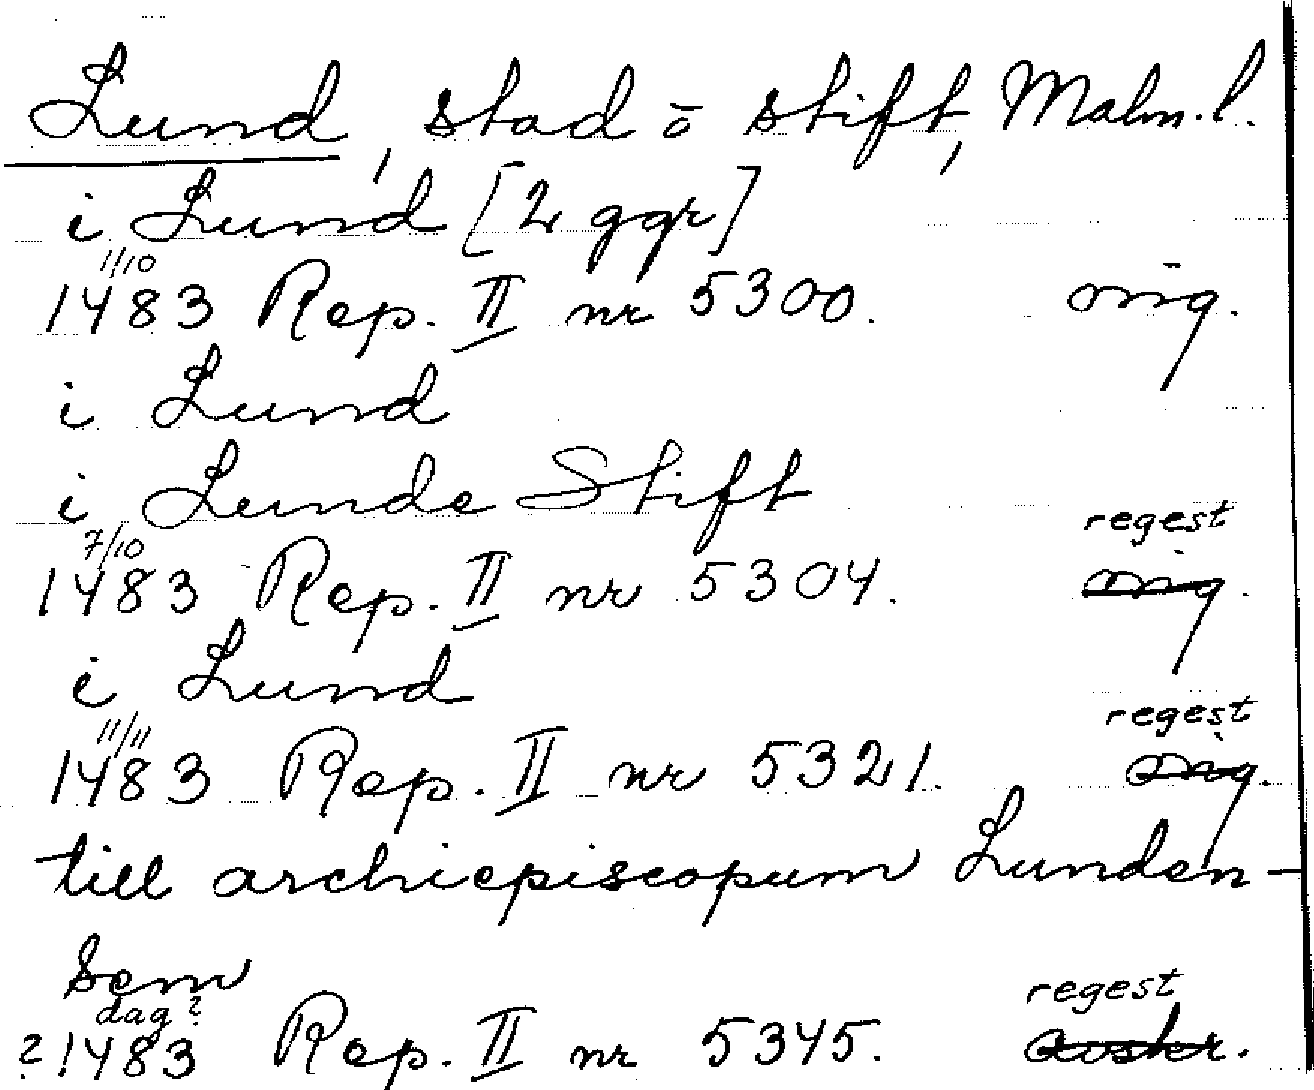 Lund, stad o stift, Malm.l.
i Lund [2 ggr]
1/10
1483 Rep. II nr 5300. orig.
i Lund
i Lunde Stift
7/10 regest
1483 Rep. II nr 5304. orig.
i Lund
11/11 regest
1483 Rep. II nr 5321. orig.
till archiepiscopum Lunden-
sem
dag? regest
?1483 Rep. II nr 5345. avskr.